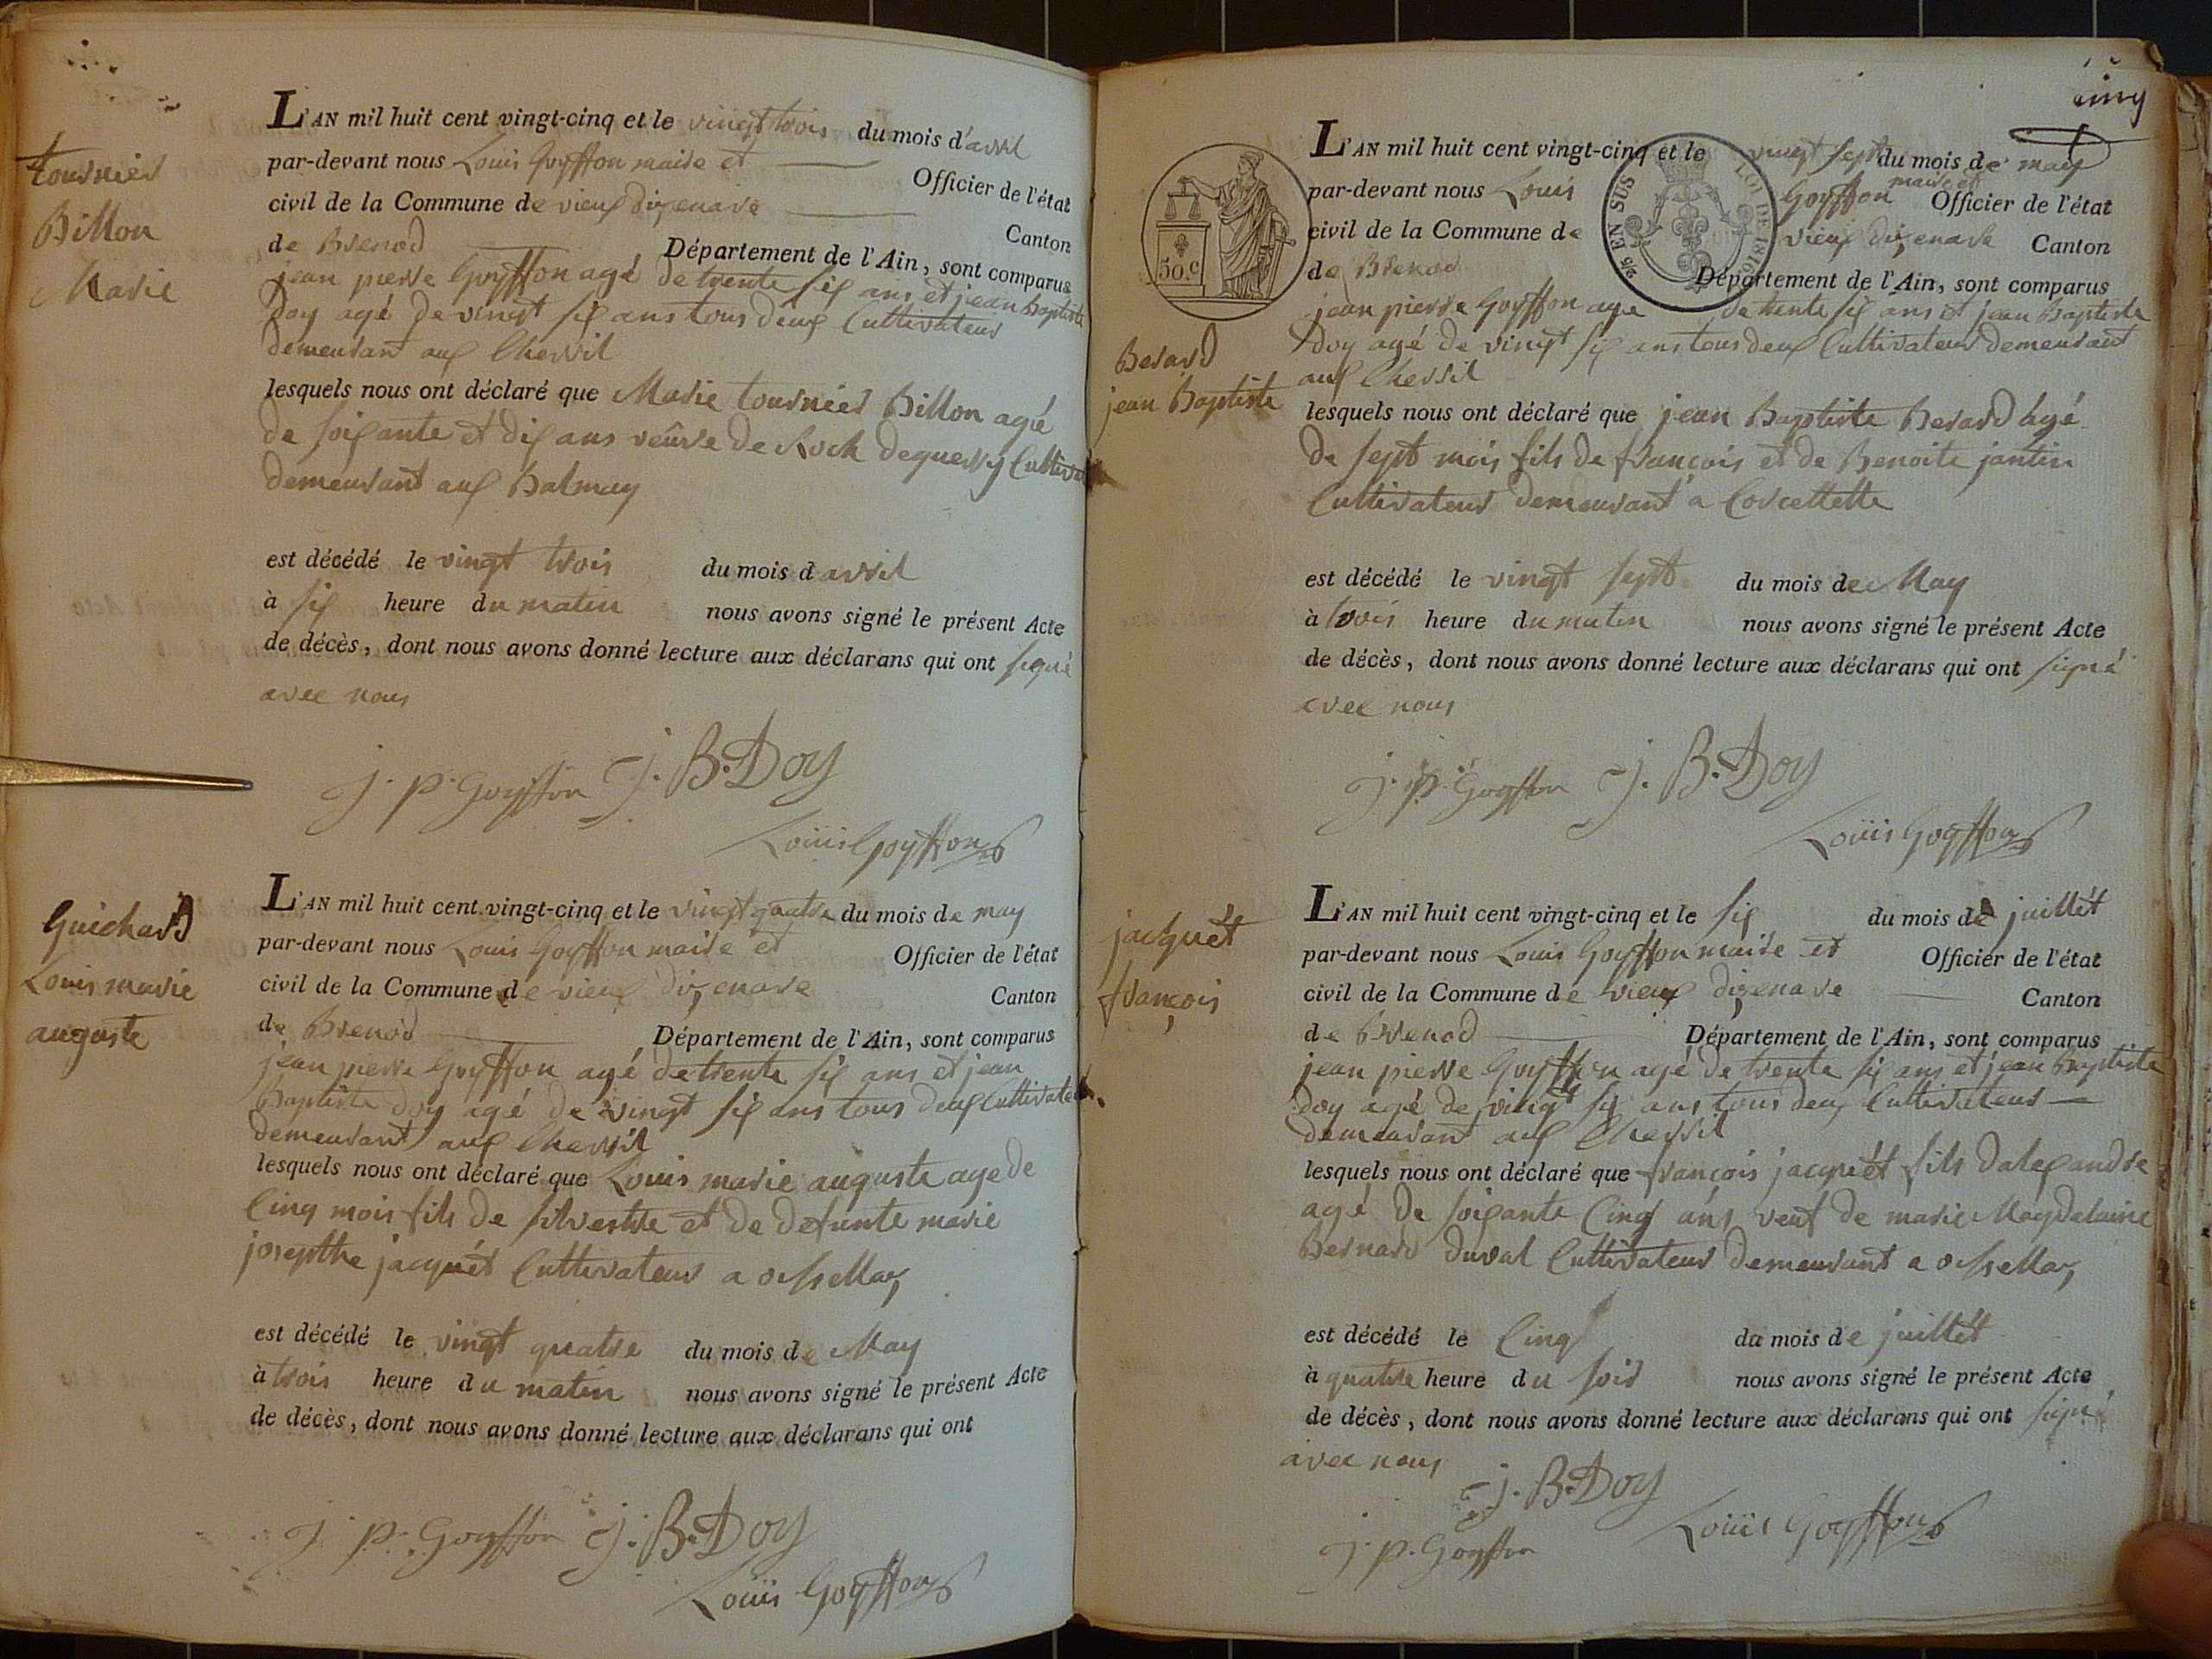 tournier
Billon
Marie
L'AN mil huit cent vingt-cinq et le vingt trois du mois d'avril
par-devant nous Louis Goyffon maire et Officier de l'état
civil de la Commune de vieux dizenave Canton
de Brenod Département de l'Ain, sont comparus
jean pierre Goyffon agé de trente six ans et jean Baptiste
Doy agé de vingt six ans tous deux Cultivateur
demeurant aux Chevril
lesquels nous ont déclaré que Marie tournier Billon agé
de soixante et dix ans veûve de Roch dequerry Cultivat
demeurant aux Balmay
est décédé le vingt trois du mois d avril
à six heure du matin nous avons signé le présent Acte
de décès, dont nous avons donné lecture aux déclarans qui ont signé
avec nous
J. P. Goyffon J. B. Doy
Louis Goyffon
Guichard
Louis marie
auguste
L'AN mil huit cent vingt-cinq et le vingt quatre du mois de may
par-devant nous Louis Goyffon maire et Officier de l'état
civil de la Commune de vieux dizenave Canton
de Brenod Département de l'Ain, sont comparus
jean pierre Goyffon agé de trente six ans et jean
Baptiste doy agé de vingt six ans tous deux Cultivateur
demeurant aux Chevril
lesquels nous ont déclaré que Louis marie auguste age de
Cinq mois fils de silvestre et de defunte marie
josepthe jacquét Cultivateur a
est décédé le vingt quatre du mois de May
à trois heure du matin nous avons signé le présent Acte
de décès, dont nous avons donné lecture aux déclarans qui ont
J. P. Goyffon J. B. Doy
Louis Goyffon
cinq
50.c
2/5 EN SUS LOI DE 1816
Berard
jean Baptiste
L'AN mil huit cent vingt-cinq et le vingt sept du mois de may
par-devant nous Louis Goyffon maire et Officier de l'état
civil de la Commune de vieux dizenave Canton
de Brenod Département de l'Ain, sont comparus
jean pierre Goyffon age de trente six ans et jean Baptiste
Doy agé de vingt six ans tous deux Cultivateur demeurant
aux Chevril
lesquels nous ont déclaré que jean Baptiste Berard agé
de sept mois fils de françois et de Benoite jantin
Cultivateur demeurant a Corcellette
est décédé le vingt sept du mois de May
à trois heure du matin nous avons signé le présent Acte
de décès, dont nous avons donné lecture aux déclarans qui ont signé
avec nous
J. P. Goyffon J. B. Doy
Louis Goyffon
jacquét
françois
L'AN mil huit cent vingt-cinq et le six du mois de juillét
par-devant nous Louis Goyffon maire et Officier de l'état
civil de la Commune de vieux dizenave Canton
de Brenod Département de l'Ain, sont comparus
jean pierre Goyffon agé de trente six ans et jean Baptiste
Doy agé de vingt six ans tous deux Cultivateur
demeurant aux Chevril
lesquels nous ont déclaré que françois jacquét fils dalexandre
agé de soixante Cinq ans veuf de marie Magdalaine
Bernard duval Cultivateur demeurant a
est décédé le Cinq du mois de juillét
à quatre heure du soir nous avons signé le présent Acte
de décès, dont nous avons donné lecture aux déclarans qui ont signé
avec nous
J. B. Doy
J. P. Goyffon Louis Goyffon